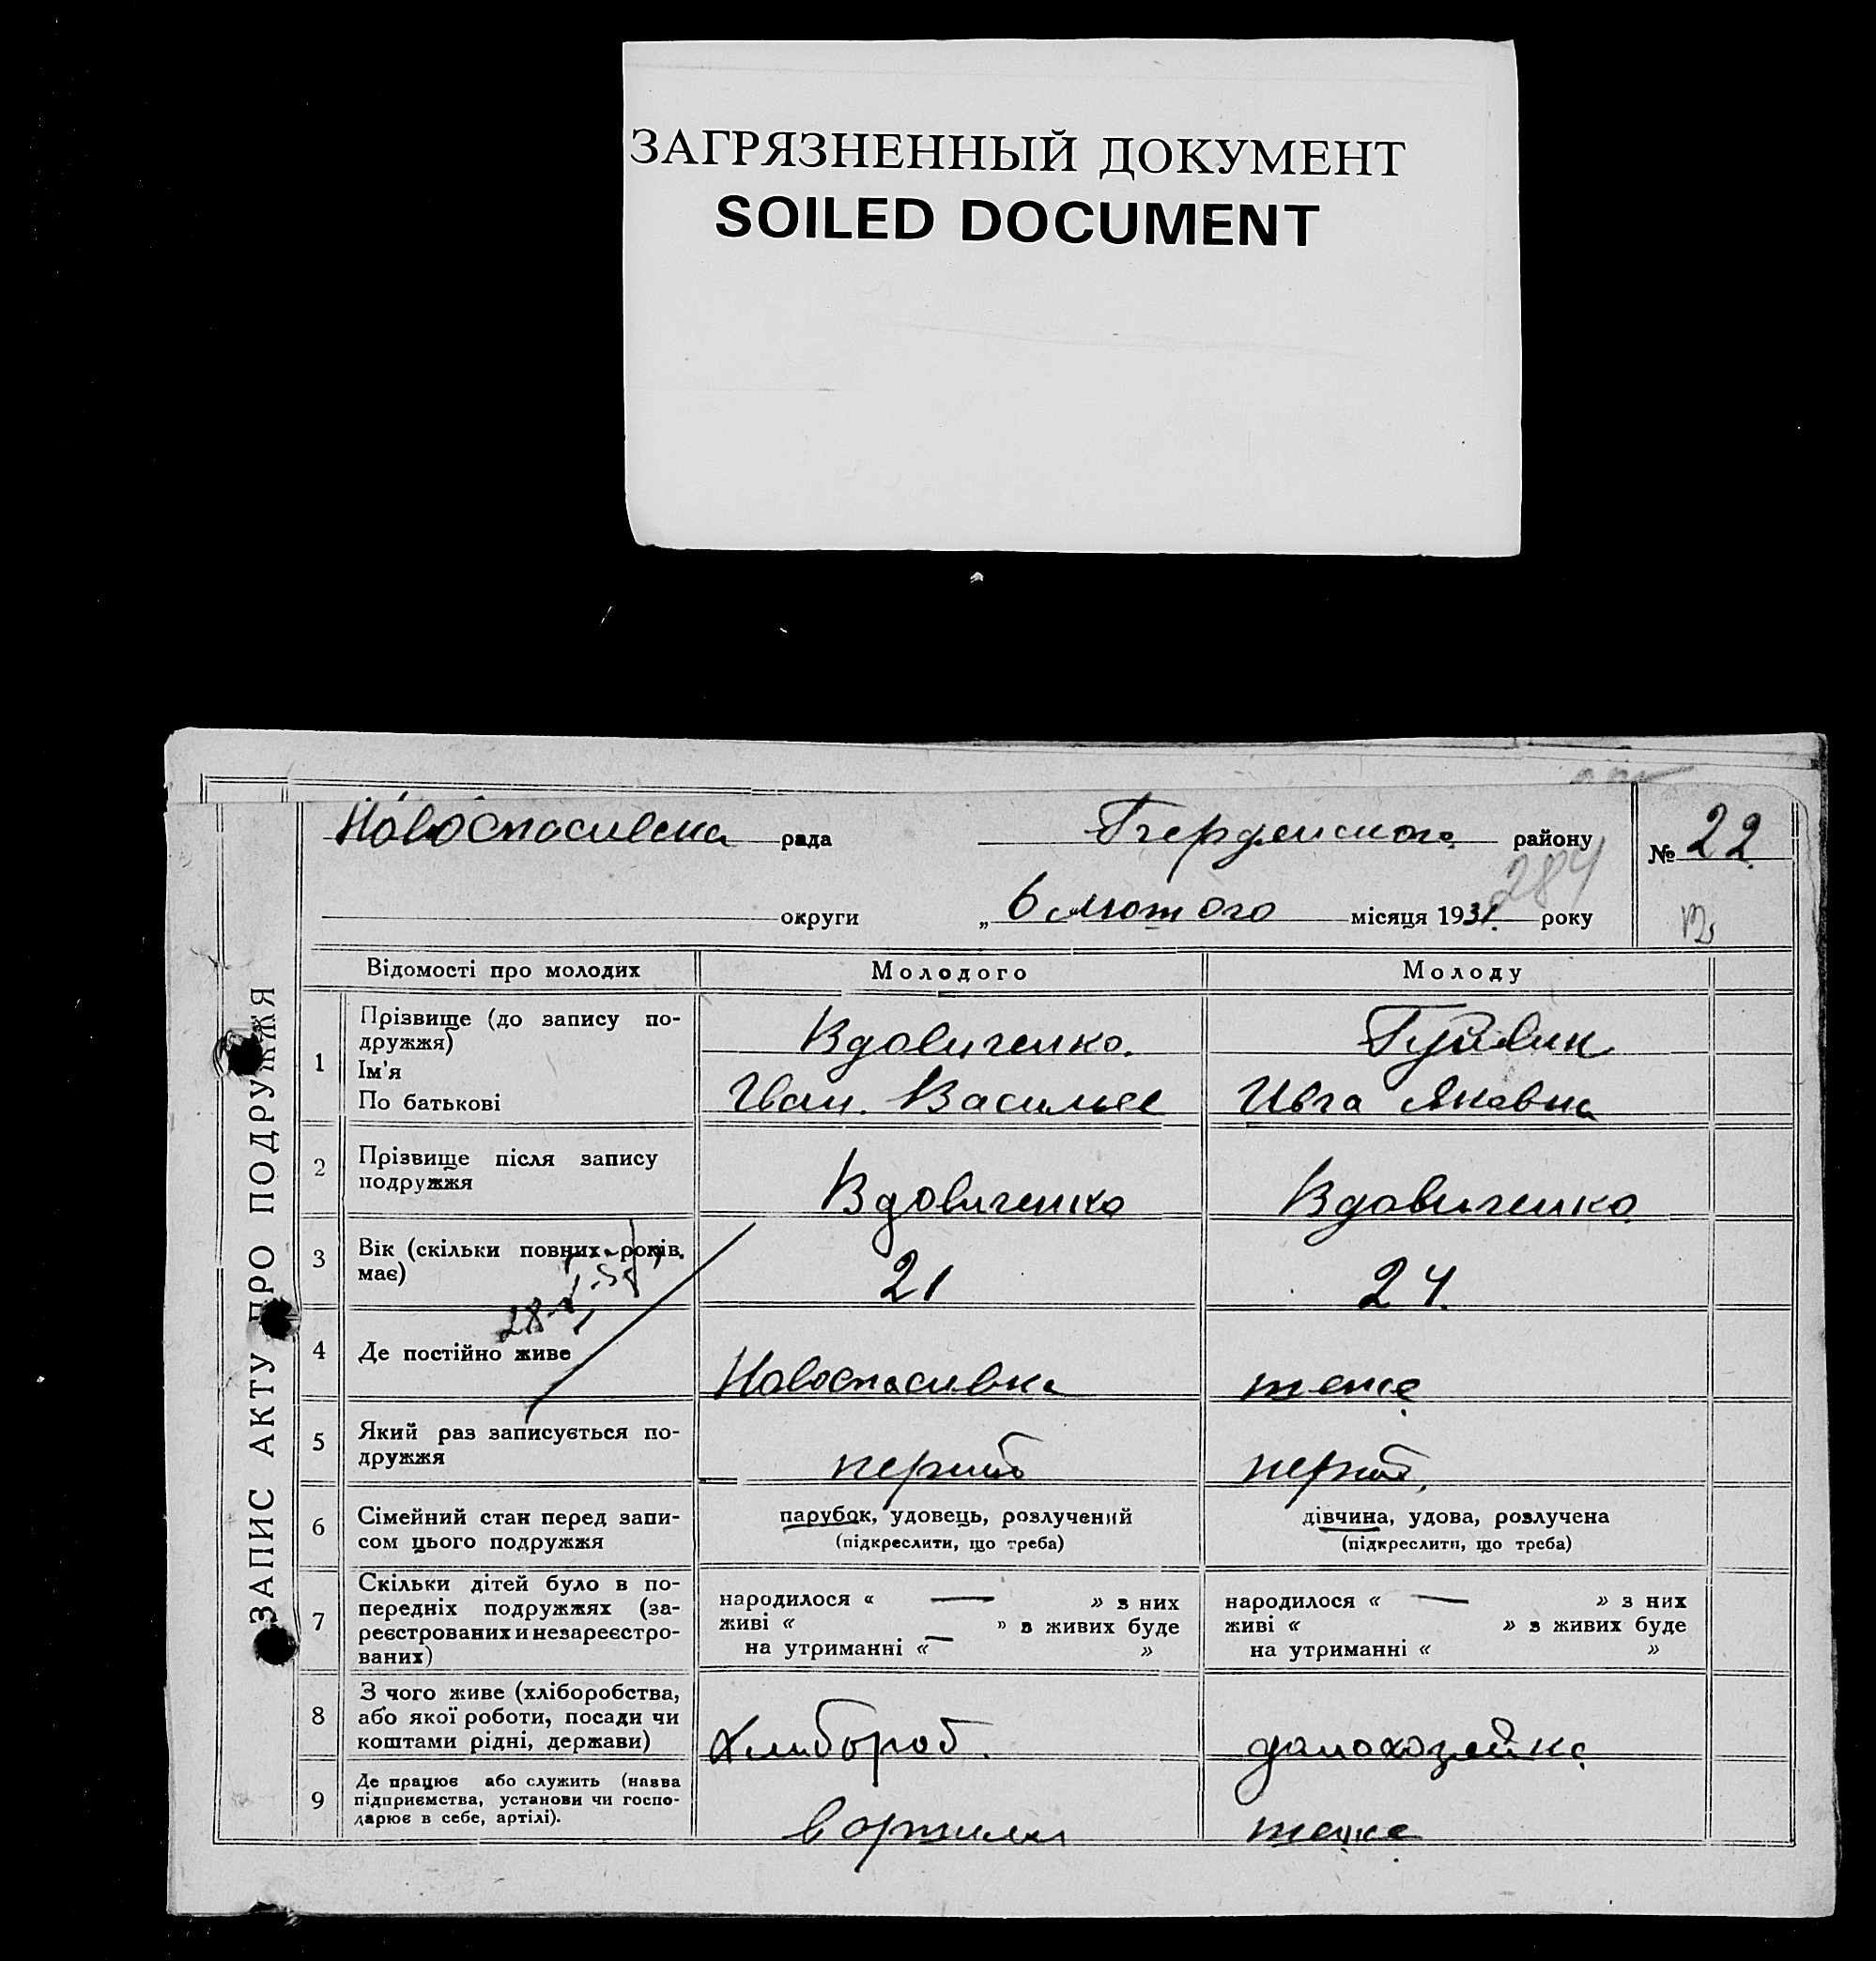 ЗАГРЯЗНЕННЫЙ ДОКУМЕНТ
SOILED DOCUMENT
Новоспасивска рада
району
№ 22
284
округи
„ 6 Лютого місяця 1931. року
ЗАПИС АКТУ ПРО ПОДРУЖЖЯ
Відомості про молодих
Молодого
Молоду
1
Прізвище (до запису по-
дружжя)
Ім'я
По батькові
Вдовиченко.
Іван. Василье
Ивга Яковна
2
Прізвище після запису
подружжя
Вдовиченко
Вдовиченко
3
Вік (скільки повних років.
має)
21
24.
4
Де постійно живе
Новоспасивка
теже
5
Який раз записується по-
дружжя
перший
перший
6
Сімейний стан перед запи-
сом цього подружжя
парубок, удовець, розлучений
(підкреслити, що треба)
дівчина, удова, розлучена
(підкреслити, що треба)
7
Скільки дітей було в по-
передніх подружжях (за-
реєстрованих и незареєстро-
ваних)
народилося « — » з них
живі « » в живих буде
на утриманні « — »
народилося « — » з них
живі « » з живих буде
на утриманні « »
8
З чого живе (хліборобства,
або якої роботи, посади чи
коштами рідні, держави)
Хлибороб.
домохозяйка
9
Де працює або служить (назва
підприємства, установи чи госпо-
дарює в себе, артілі).
в артили
теже